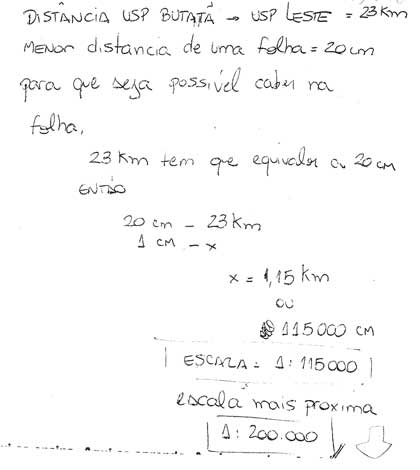 DISTÂNCIA USP BUTATÃ → USP LESTE = 23 Km
MENOR distancia de uma folha = 20 cm
para que seja possível caber na
folha,
23 Km tem que equivaler a 20 cm
ENTÃO
20 cm - 23 Km
1 cm - x
x = 1,15 Km
ou
115000 cm
ESCALA = 1:115000
escala mais proxima
1:200.000